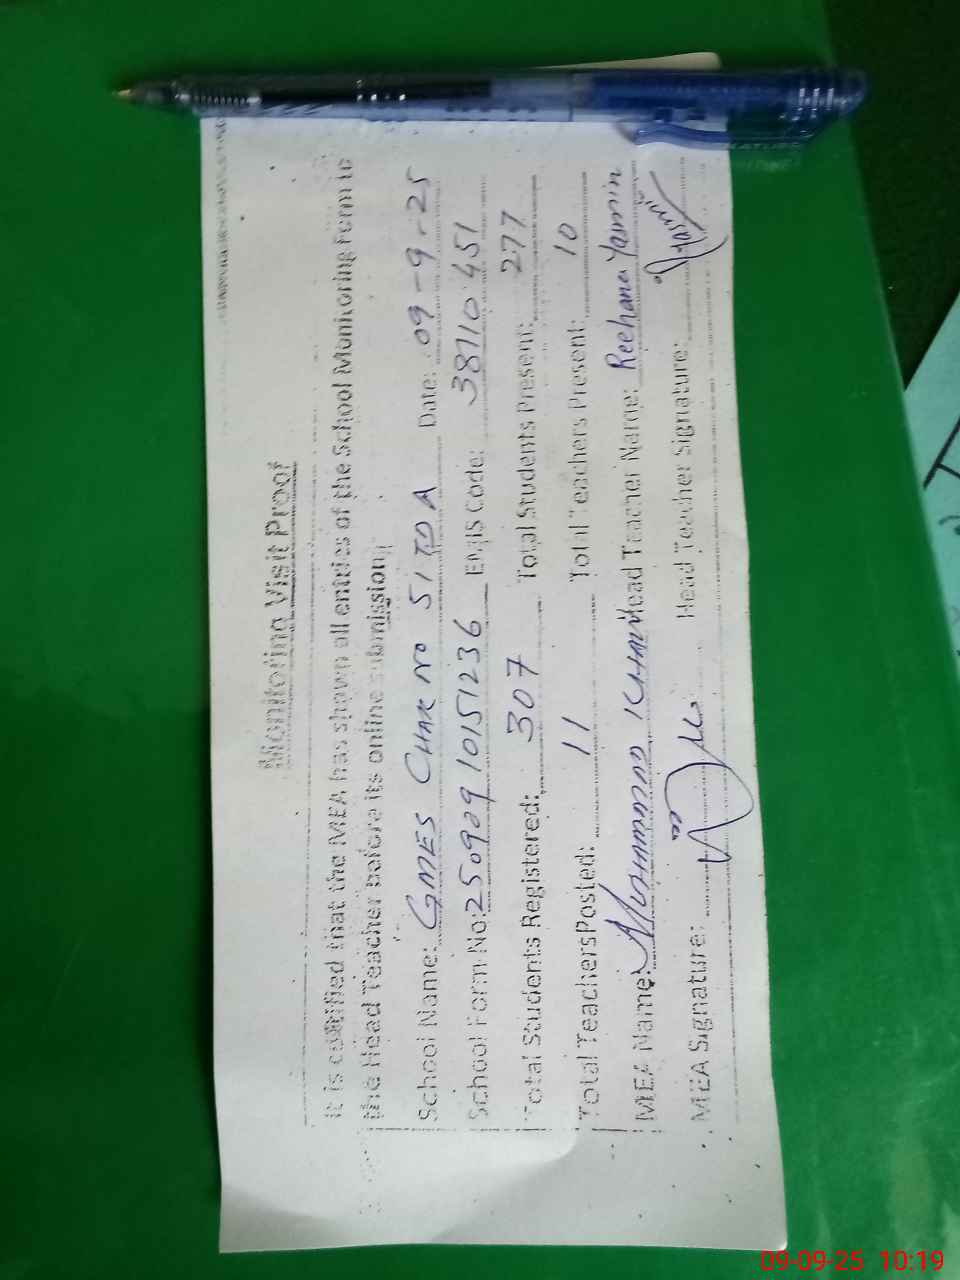 Monitoring Visit Proof
It is certified that the MEA has shown all entries of the School Monitoring Form to
the Head Teacher before its online submission
School Name: GMES CHAK NO 51 TDA Date: 09-9-25
School Form No: 2509091015 1236 Emis Code: 38110451
Total Students Registered: 307 Total Students Present: 277
Total Teachers Posted: 11 Total Teachers Present: 10
MEA Name: KHAN Head Teacher Name: Reehana Yasmin
MEA Signature: Head Teacher Signature: Yasmin
NATURE
09-09-25 10:19